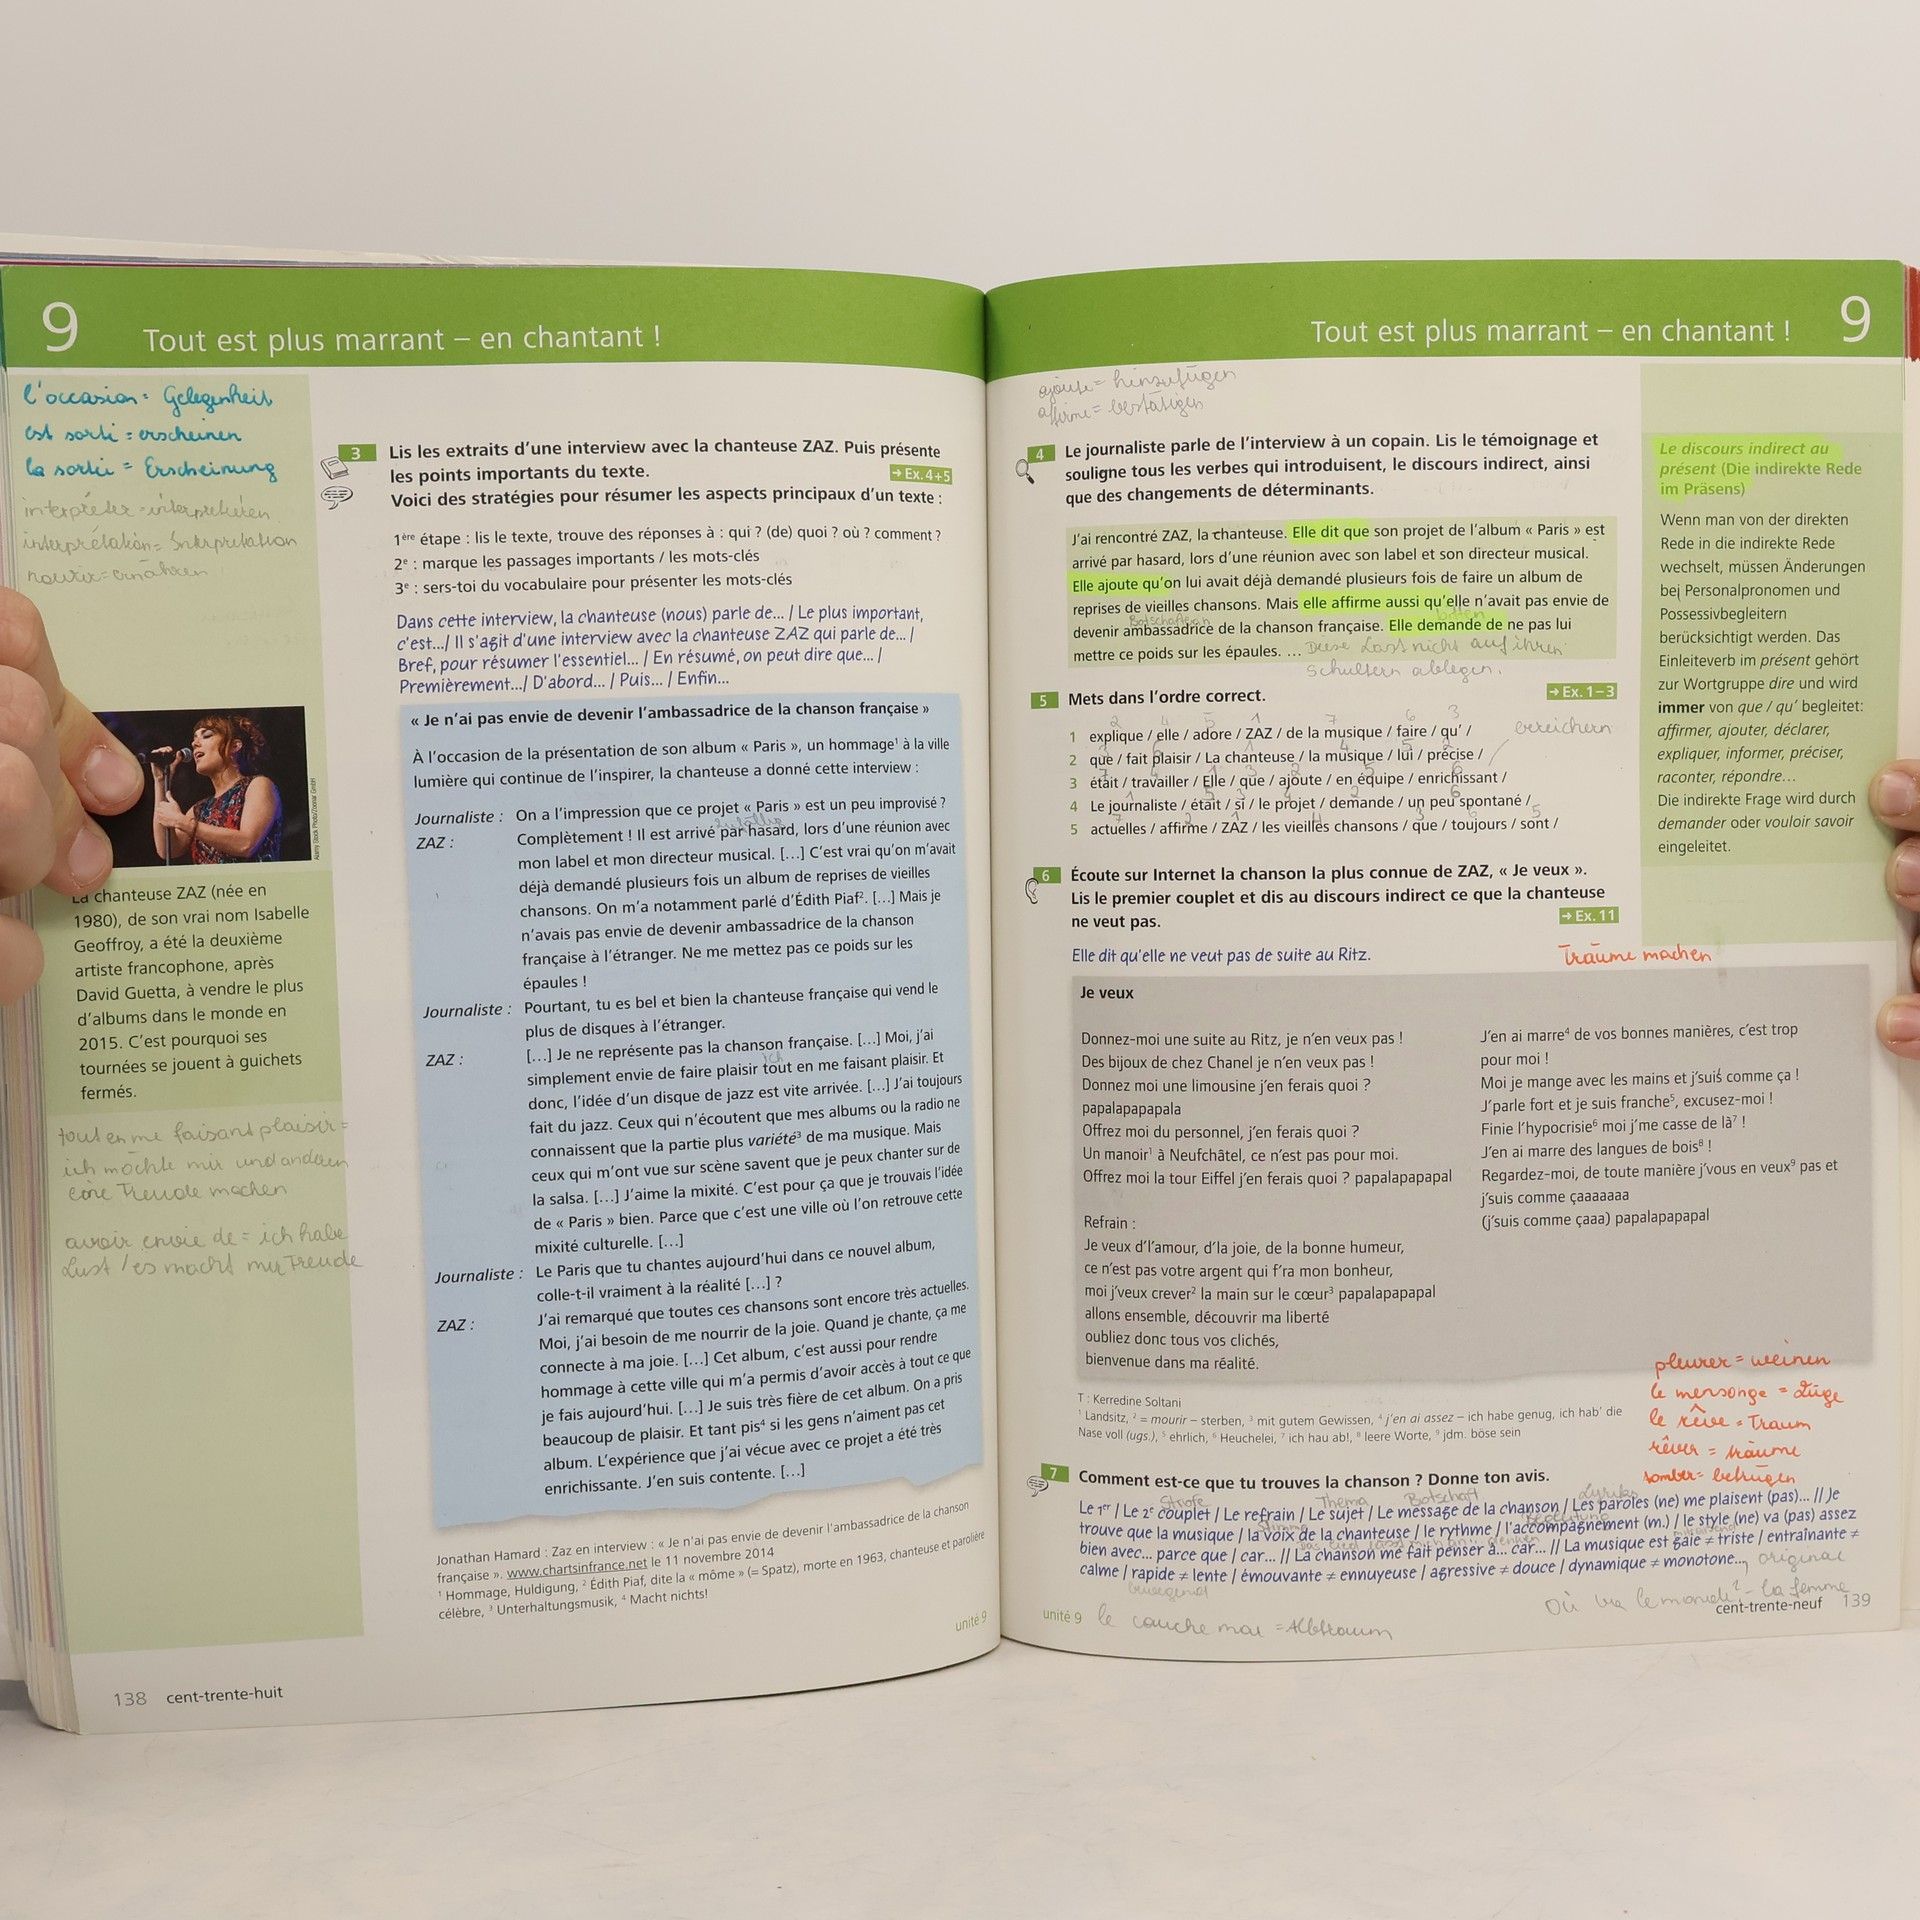 9 Tout est plus marrant – en chantant !
l'occasion = Gelegenheit
est sorti = erscheinen
la sortie = Erscheinung
interpréter = interpretieren
interprétation = Interpretation
nourrir = ernähren
3 Lis les extraits d'une interview avec la chanteuse ZAZ. Puis présente
les points importants du texte. → Ex. 4+5
Voici des stratégies pour résumer les aspects principaux d'un texte :
1ère étape : lis le texte, trouve des réponses à : qui ? (de) quoi ? où ? comment ?
2e : marque les passages importants / les mots-clés
3e : sers-toi du vocabulaire pour présenter les mots-clés
Dans cette interview, la chanteuse (nous) parle de... / Le plus important,
c'est.../ Il s'agit d'une interview avec la chanteuse ZAZ qui parle de... /
Bref, pour résumer l'essentiel... / En résumé, on peut dire que... /
Premièrement.../ D'abord... / Puis... / Enfin...
« Je n'ai pas envie de devenir l'ambassadrice de la chanson française »
À l'occasion de la présentation de son album « Paris », un hommage¹ à la ville
lumière qui continue de l'inspirer, la chanteuse a donné cette interview :
Journaliste : On a l'impression que ce projet « Paris » est un peu improvisé ?
zufällig
ZAZ : Complètement ! Il est arrivé par hasard, lors d'une réunion avec
mon label et mon directeur musical. [...] C'est vrai qu'on m'avait
déjà demandé plusieurs fois un album de reprises de vieilles
chansons. On m'a notamment parlé d'Édith Piaf². [...] Mais je
n'avais pas envie de devenir ambassadrice de la chanson
française à l'étranger. Ne me mettez pas ce poids sur les
épaules !
Journaliste : Pourtant, tu es bel et bien la chanteuse française qui vend le
plus de disques à l'étranger.
ZAZ : [...] Je ne représente pas la chanson française. [...] Moi, j'ai
ich
simplement envie de faire plaisir tout en me faisant plaisir. Et
donc, l'idée d'un disque de jazz est vite arrivée. [...] J'ai toujours
fait du jazz. Ceux qui n'écoutent que mes albums ou la radio ne
connaissent que la partie plus variété³ de ma musique. Mais
ceux qui m'ont vue sur scène savent que je peux chanter sur de
la salsa. [...] J'aime la mixité. C'est pour ça que je trouvais l'idée
de « Paris » bien. Parce que c'est une ville où l'on retrouve cette
mixité culturelle. [...]
Journaliste : Le Paris que tu chantes aujourd'hui dans ce nouvel album,
colle-t-il vraiment à la réalité [...] ?
ZAZ : J'ai remarqué que toutes ces chansons sont encore très actuelles.
Moi, j'ai besoin de me nourrir de la joie. Quand je chante, ça me
connecte à ma joie. [...] Cet album, c'est aussi pour rendre
hommage à cette ville qui m'a permis d'avoir accès à tout ce que
je fais aujourd'hui. [...] Je suis très fière de cet album. On a pris
beaucoup de plaisir. Et tant pis⁴ si les gens n'aiment pas cet
album. L'expérience que j'ai vécue avec ce projet a été très
enrichissante. J'en suis contente. [...]
Jonathan Hamard : Zaz en interview : « Je n'ai pas envie de devenir l'ambassadrice de la chanson
française ». www.chartsinfrance.net le 11 novembre 2014
¹ Hommage, Huldigung, ² Édith Piaf, dite la « môme » (= Spatz), morte en 1963, chanteuse et parolière
célèbre, ³ Unterhaltungsmusik, ⁴ Macht nichts!
Alamy Stock Photo/Zoonar GmbH
La chanteuse ZAZ (née en
1980), de son vrai nom Isabelle
Geoffroy, a été la deuxième
artiste francophone, après
David Guetta, à vendre le plus
d'albums dans le monde en
2015. C'est pourquoi ses
tournées se jouent à guichets
fermés.
tout en me faisant plaisir =
ich möchte mir und anderen
eine Freude machen
avoir envie de = ich habe
Lust / es macht mir Freude
unité 9
138 cent-trente-huit
Tout est plus marrant – en chantant ! 9
ajoute = hinzufügen
affirme = bestätigen
4 Le journaliste parle de l'interview à un copain. Lis le témoignage et
souligne tous les verbes qui introduisent, le discours indirect, ainsi
que des changements de déterminants.
J'ai rencontré ZAZ, la chanteuse. Elle dit que son projet de l'album « Paris » est
arrivé par hasard, lors d'une réunion avec son label et son directeur musical.
Elle ajoute qu'on lui avait déjà demandé plusieurs fois de faire un album de
reprises de vieilles chansons. Mais elle affirme aussi qu'elle n'avait pas envie de
Botschafterin bitten
devenir ambassadrice de la chanson française. Elle demande de ne pas lui
mettre ce poids sur les épaules. ... Diese Last nicht auf ihren
Schultern ablegen.
5 Mets dans l'ordre correct. → Ex. 1–3
2 4 5 1 7 6 3
1 explique / elle / adore / ZAZ / de la musique / faire / qu' / bereichern
2 que / fait plaisir / La chanteuse / la musique / lui / précise /
3 était / travailler / Elle / que / ajoute / en équipe / enrichissant /
4 Le journaliste / était / si / le projet / demande / un peu spontané /
5 actuelles / affirme / ZAZ / les vieilles chansons / que / toujours / sont /
6 Écoute sur Internet la chanson la plus connue de ZAZ, « Je veux ».
Lis le premier couplet et dis au discours indirect ce que la chanteuse
ne veut pas. → Ex. 11
Elle dit qu'elle ne veut pas de suite au Ritz.
Träume machen
Je veux
Donnez-moi une suite au Ritz, je n'en veux pas !
Des bijoux de chez Chanel je n'en veux pas !
Donnez moi une limousine j'en ferais quoi ?
papalapapapala
Offrez moi du personnel, j'en ferais quoi ?
Un manoir¹ à Neufchâtel, ce n'est pas pour moi.
Offrez moi la tour Eiffel j'en ferais quoi ? papalapapapal
Refrain :
Je veux d'l'amour, d'la joie, de la bonne humeur,
ce n'est pas votre argent qui f'ra mon bonheur,
moi j'veux crever² la main sur le cœur³ papalapapapal
allons ensemble, découvrir ma liberté
oubliez donc tous vos clichés,
bienvenue dans ma réalité.
J'en ai marre⁴ de vos bonnes manières, c'est trop
pour moi !
Moi je mange avec les mains et j'suis comme ça !
J'parle fort et je suis franche⁵, excusez-moi !
Finie l'hypocrisie⁶ moi j'me casse de là⁷ !
J'en ai marre des langues de bois⁸ !
Regardez-moi, de toute manière j'vous en veux⁹ pas et
j'suis comme çaaaaaaa
(j'suis comme çaaa) papalapapapal
T : Kerredine Soltani
¹ Landsitz, ² = mourir – sterben, ³ mit gutem Gewissen, ⁴ j'en ai assez – ich habe genug, ich hab' die
Nase voll (ugs.), ⁵ ehrlich, ⁶ Heuchelei, ⁷ ich hau ab!, ⁸ leere Worte, ⁹ jdm. böse sein
pleurer = weinen
le mensonge = Lüge
le rêve = Traum
rêver = träume
tomber = betrügen
7 Comment est-ce que tu trouves la chanson ? Donne ton avis.
Strofe Thema Botschaft Lyriks
Le 1er / Le 2e couplet / Le refrain / Le sujet / Le message de la chanson / Les paroles (ne) me plaisent (pas)... // Je
Stimme
trouve que la musique / la voix de la chanteuse / le rythme / l'accompagnement (m.) / le style (ne) va (pas) assez
bien avec... parce que / car... // La chanson me fait penser à... car... // La musique est gaie ≠ triste / entraînante ≠
calme / rapide ≠ lente / émouvante ≠ ennuyeuse / agressive ≠ douce / dynamique ≠ monotone..., original
bewegend
Où va le monde? - La femme
unité 9 le cauchemar = Albtraum
cent-trente-neuf 139
Le discours indirect au
présent (Die indirekte Rede
im Präsens)
Wenn man von der direkten
Rede in die indirekte Rede
wechselt, müssen Änderungen
bei Personalpronomen und
Possessivbegleitern
berücksichtigt werden. Das
Einleiteverb im présent gehört
zur Wortgruppe dire und wird
immer von que / qu' begleitet:
affirmer, ajouter, déclarer,
expliquer, informer, préciser,
raconter, répondre...
Die indirekte Frage wird durch
demander oder vouloir savoir
eingeleitet.